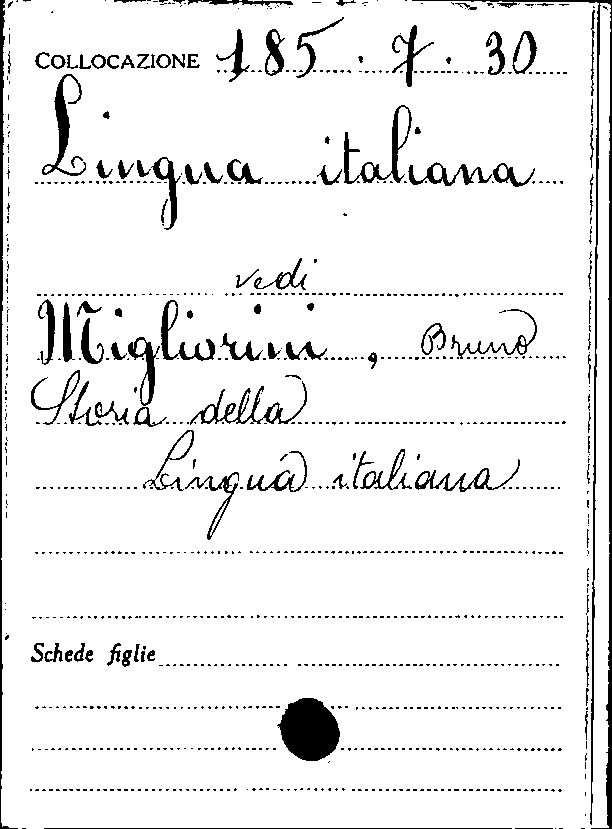 COLLOCAZIONE 185.7.30
Lingua italiana
vedi
Migliorini, Bruno
Storia della
Lingua italiana
Schede figlie